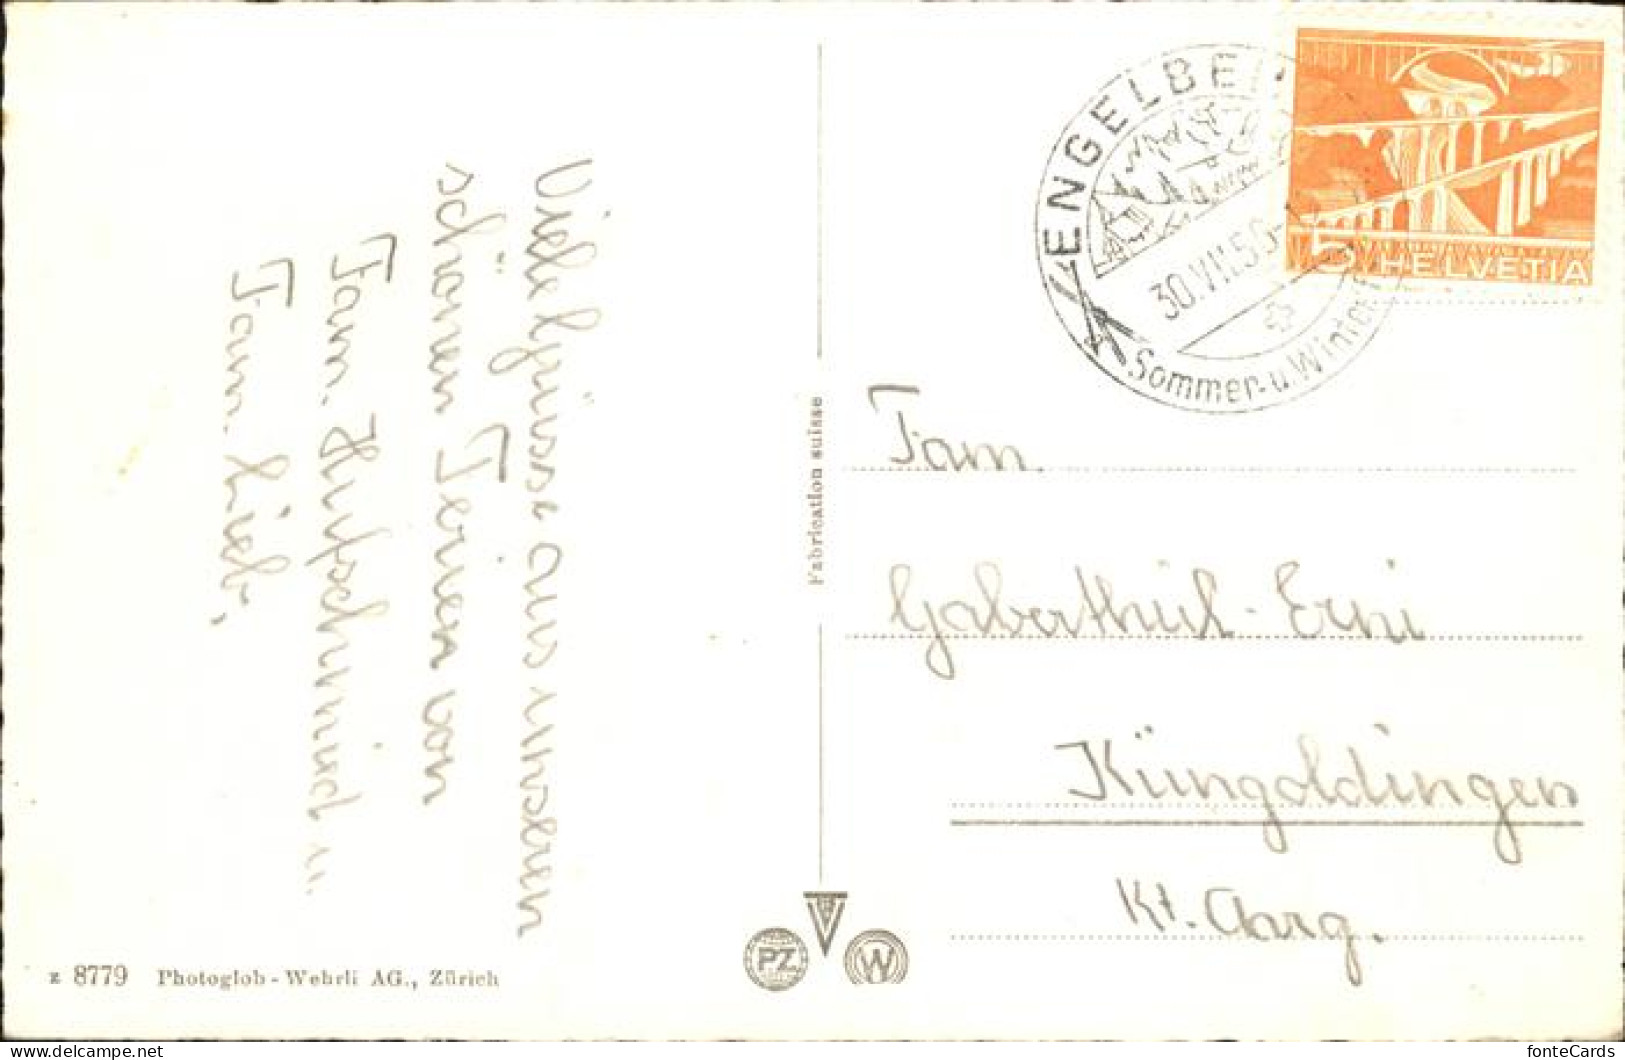 Viele Grüsse aus unseren
schönen Ferien von
Fam. Hufschmid u.
Fam. Lieb.
z 8779 Photoglob-Wehrli AG., Zürich
Fabrication suisse
PZ
W
ENGELBE
30.VII.50-
Sommer- u. Winter
5 HELVETIA
Fam.
Gabathuel-Erni
Küngoldingen
Kt. Aarg.
fonteCards